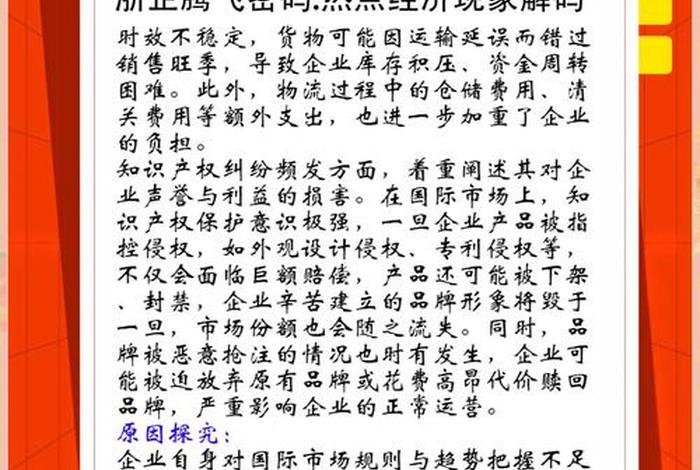 浙企腾飞密码:热点经济现象解码
时效不稳定，货物可能因运输延误而错过
销售旺季，导致企业库存积压、资金周转
困难。此外，物流过程中的仓储费用、清
关费用等额外支出，也进一步加重了企业
的负担。
知识产权纠纷频发方面，着重阐述其对企
业声誉与利益的损害。在国际市场上，知
识产权保护意识极强，一旦企业产品被指
控侵权，如外观设计侵权、专利侵权等，
不仅会面临巨额赔偿，产品还可能被下架
、封禁，企业辛苦建立的品牌形象将毁于
一旦，市场份额也会随之流失。同时，品
牌被恶意抢注的情况也时有发生，企业可
能被迫放弃原有品牌或花费高昂代价赎回
品牌，严重影响企业的正常运营。
原因探究：
企业自身对国际市场规则与趋势把握不足